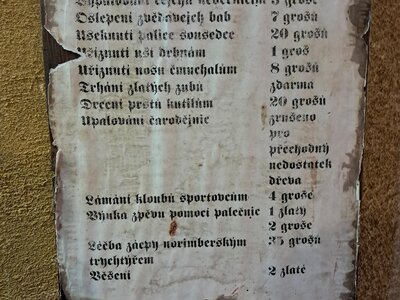 Oslepení zvědavejch bab 7 grošů
Useknutí palice sousedce 20 grošů
Uříznutí uší drbnám 1 groš
Uříznutí nosu čmuchalům 8 grošů
Trhání zlatých zubů zdarma
Drcení prstů kutilům 20 grošů
Upalování čarodějnic zrušeno
pro
přechodný
nedostatek
dřeva
Lámání kloubů sportovcům 4 groše
Výuka zpěvu pomocí palečnic 1 zlatý
2 groše
Léčba zácpy norimberským 35 grošů
trychtýřem
Věšení 2 zlaté